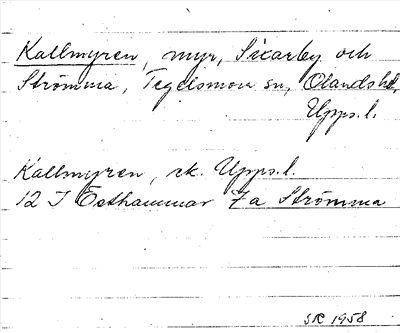 Kallmyren, myr, Sixarby och
Strömma, Tegelsmora sn, Olands hd,
Upps.l.
Kallmyren, ek. Upps.l.
12 I Östhammar 7a Strömma
SR 1958